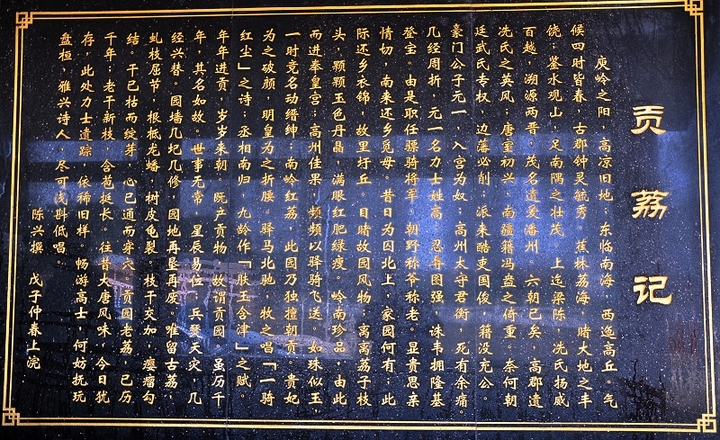 贡荔记
庾岭之阳，高凉旧地；东临南海，西迤高丘。气
候四时皆春，古郡钟灵毓秀。蕉林荔海，睹大地之丰
饶；鉴水观山，足南隅之壮茂。上迄梁陈，冼氏扬威
百越，溯源两晋，茂名遗爱潘州。六朝已矣，高郡遗
冼氏之英风；唐室初兴，南疆籍冯盎之倚重。奈何朝
廷武氏专权，边藩必削，派来酷吏国俊，籍没充公。
豪门公子元一，入宫为奴；高州太守君衡，死有余痛
几经周折，元一名力士姓高，忍辱图强，诛韦拥隆基
登宝。由是职任骠骑将军，朝野称爷称老。显贵思亲
情切，南来还乡觅母。昔日为囚北上，家园何有；此
际还乡衣锦，故里圩丘。日睹故园风物，离离荔子枝
头，颗颗玉色丹晶，满眼红肥绿瘦。岭南珍品，由此
而进秦皇宫；高州佳果，频频以驿骑飞送。如珠似玉，
一时竞名动缙绅；南岭红荔，此园万独擅朝贡。贵妃
为之破颜，明皇为之折腰。驿马北驰，牧之唱「一骑
红尘」之诗；丞相南归，九龄作「肤玉含津」之赋。
年年进贡，岁岁来朝。既产贡物，故谓贡园。虽历千
年，其名如故。世事无常，星辰易位，兵燹天灾，几
经兴替。园墙几圮几修，园地再垦再废，唯留古荔，
虬枝屈节，根柢龙蟠，树皮龟裂，枝干交加，瘿瘤勾
结。干已枯而绽芽，心已通而穿穴。贡园老荔，已历
千年；老干新枝，含苞挺长。往昔大唐风味，今日犹
存，此处力士遗踪，依稀旧样。畅游高士，何妨抚玩
盘桓，雅兴诗人，尽可浅斟低唱。
陈兴撰　戊子仲春上浣